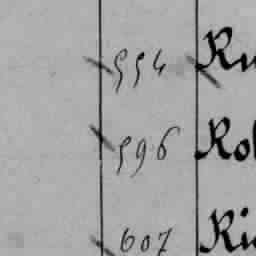 554 Ru
596 Rol
607 Ri